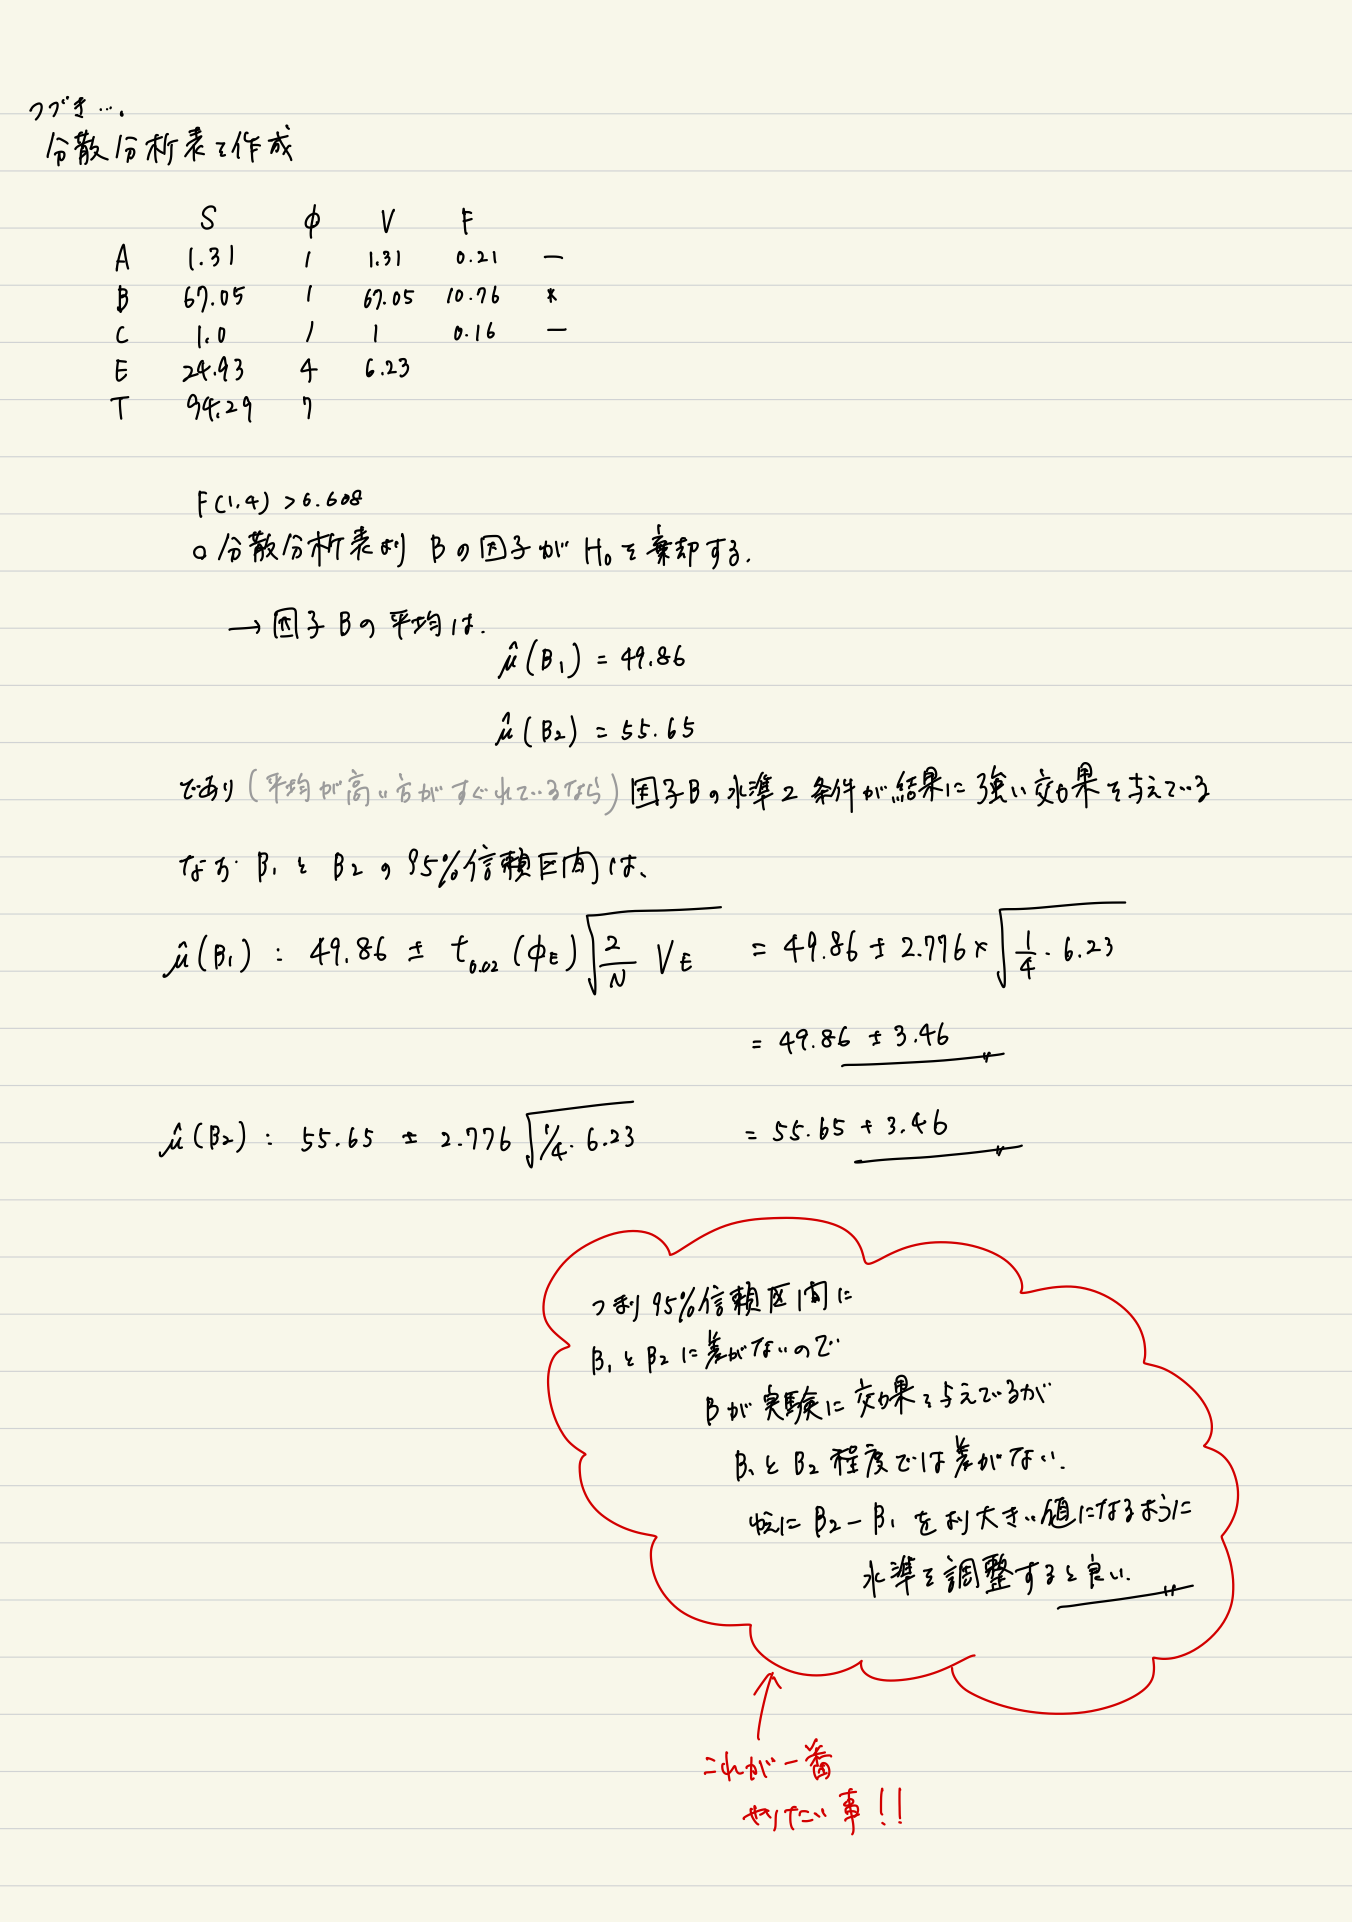 つづき….
分散分析表を作成
S φ V F
A 1.31 1 1.31 0.21 —
B 67.05 1 67.05 10.76 *
C 1.0 1 1 0.16 —
E 24.93 4 6.23
T 94.29 7
F(1.4) > 6.608
○ 分散分析表より Bの因子が H₀を棄却する.
→ 因子Bの平均は.
μ̂(B₁) = 49.86
μ̂(B₂) = 55.65
であり(平均が高い方がすぐれているなら)因子Bの水準2条件が結果に強い効果を与えている
なお B₁と B₂の95%信頼区間は、
μ̂(B₁) : 49.86 ± t₀.₀₂(φE)√(2/N VE) = 49.86 ± 2.776×√(1/4・6.23)
= 49.86 ± 3.46
μ̂(B₂) : 55.65 ± 2.776√(1/4・6.23) = 55.65 ± 3.46
つまり95%信頼区間に
B₁とB₂に差がないので
Bが実験に効果を与えているが
B₁とB₂程度では差がない.
故に B₂−B₁をより大きい値になるように
水準を調整すると良い.
これが一番
やりたい事!!